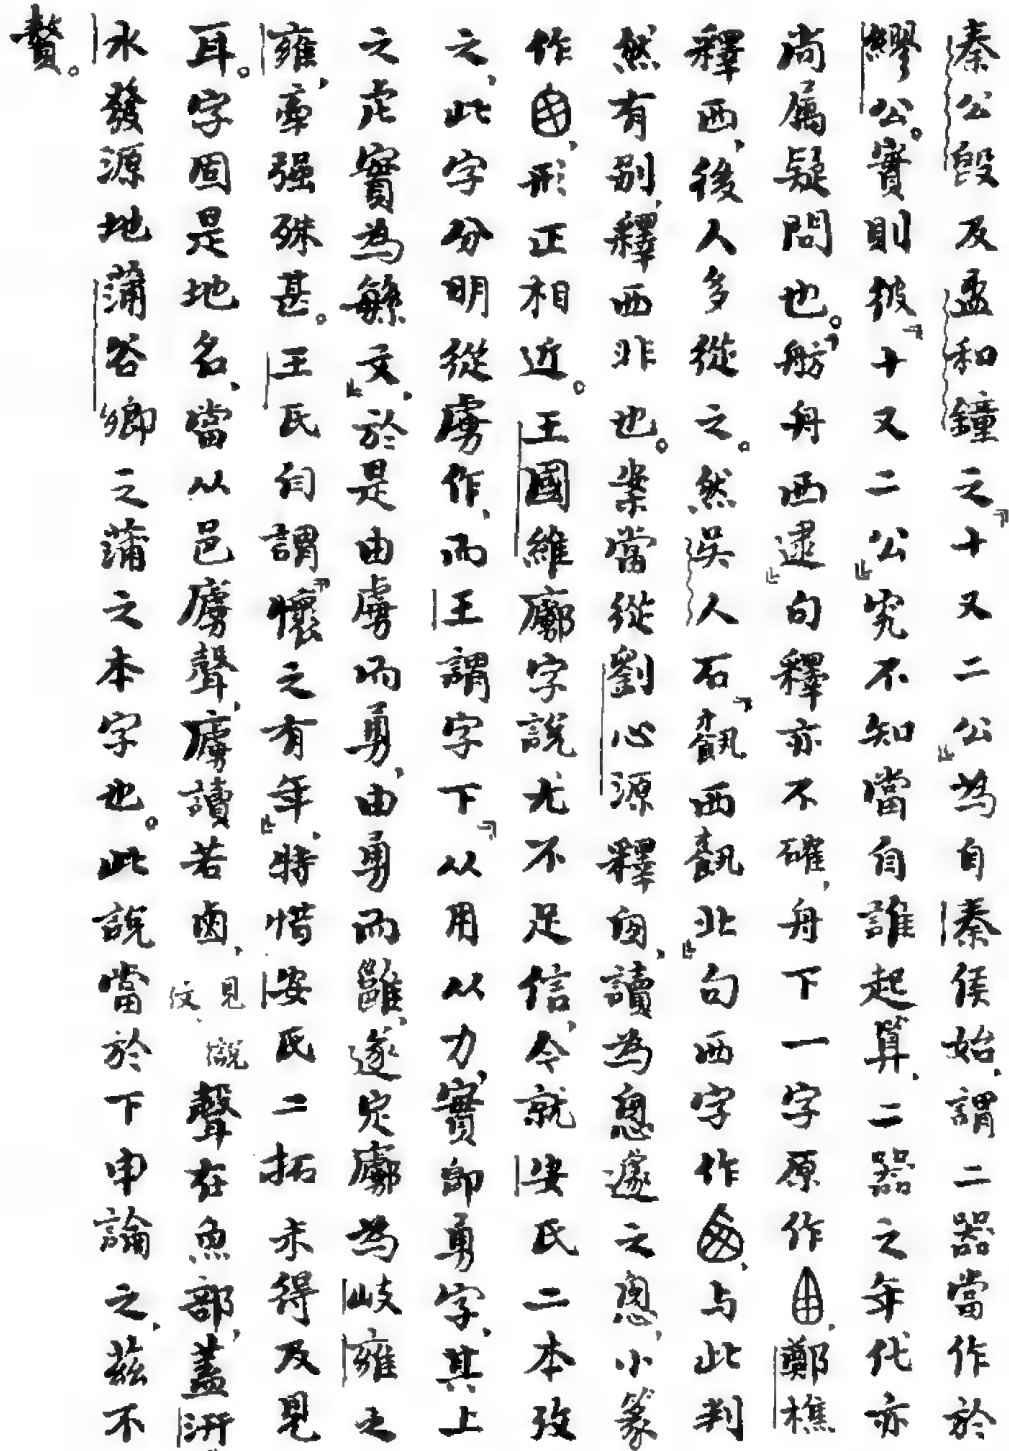 秦公𣪘及盄和鐘之「十又二公」為自秦侯始，謂二器當作於
繆公。實則彼「十又二公」究不知當自誰起算，二器之年代亦
尚屬疑問也。「舫舟西逮」句釋亦不確，舟下一字原作，鄭樵
釋西，後人多從之。然吳人石「西北」句西字作，与此判
然有别，釋西非也。案當從劉心源釋囱，讀為悤遽之悤，小篆
作，形正相近。王國維鄜字說尤不足信，今就安氏二本攷
之，此字分明從虜作，而王謂字下「从用从力，實即勇字，其上
之虍實為緐文」，於是由虜而勇，由勇而雝，遂定為岐雍之
雍，牽强殊甚。王氏自謂「懷之有年」，特惜安氏二拓未得及見
耳。字固是地名，當从邑虜聲，虜讀若鹵，見說文，聲在魚部，蓋汧
水發源地蒲谷鄉之蒲之本字也。此說當於下申論之，茲不
贅。